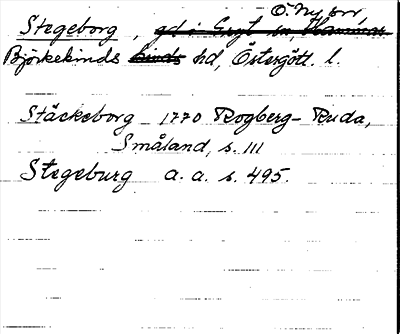 Ö. Ny
Stegeborg, gd i Gryt sn, Hammar-
Björkekinds kinds hd, Östergötl. l.
Stäckeborg 1770 Rogberg-Ruda,
Småland, s. 111
Stegeburg a. a. s. 495.